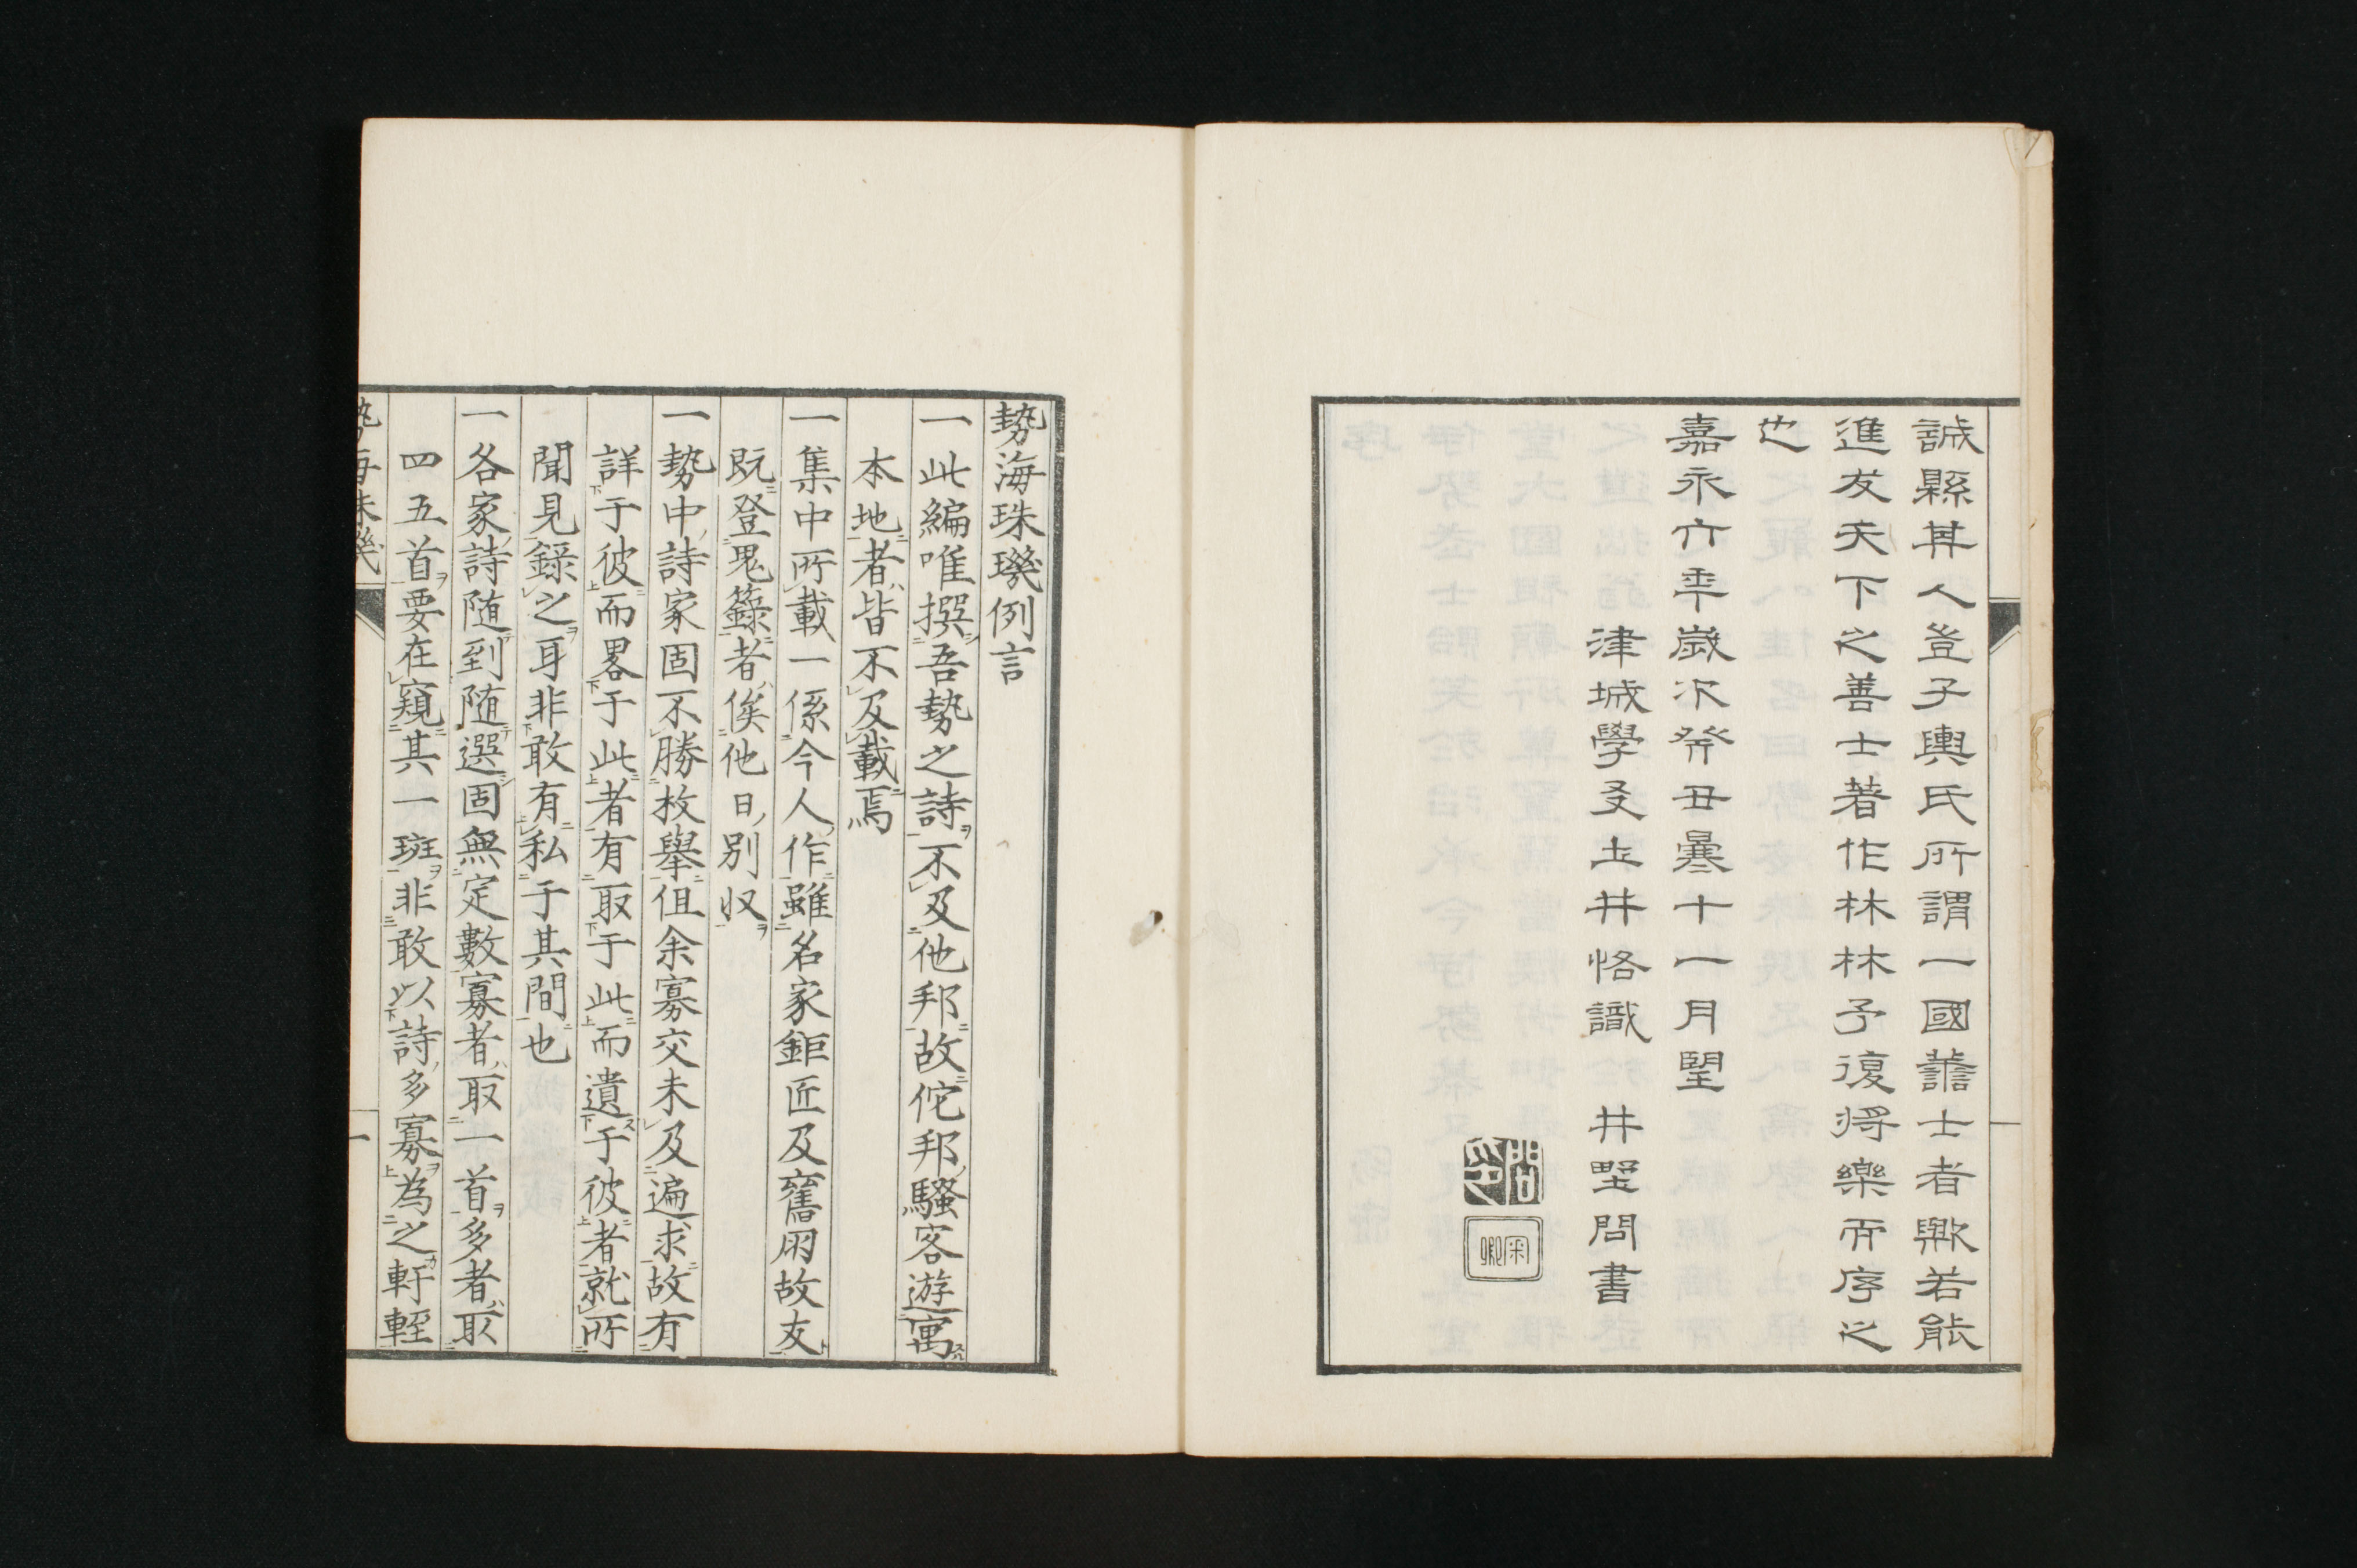 誠縣其人豈子輿氏所謂一國譱士者歟若能
進友天下之善士著作林林予復將樂而序之
也
嘉永六年歲次癸丑冬十一月望
津城學叟土井恪識 井野問書
勢海珠璣例言
一此編唯撰吾勢之詩不及他邦故佗邦騷客遊寓
本地者皆不及載焉
一集中所載一係今人作雖名家鉅匠及舊朋故友
既登鬼籙者俟他日別収
一勢中詩家固不勝枚舉但余寡交未及遍求故有
詳于彼而畧于此者有取于此而遺于彼者就所
聞見錄之耳非敢有私于其間也
一各家詩随到随選固無定數寡者取一首多者取
四五首要在窺其一斑非敢以詩多寡為之軒輊
勢海珠璣
一